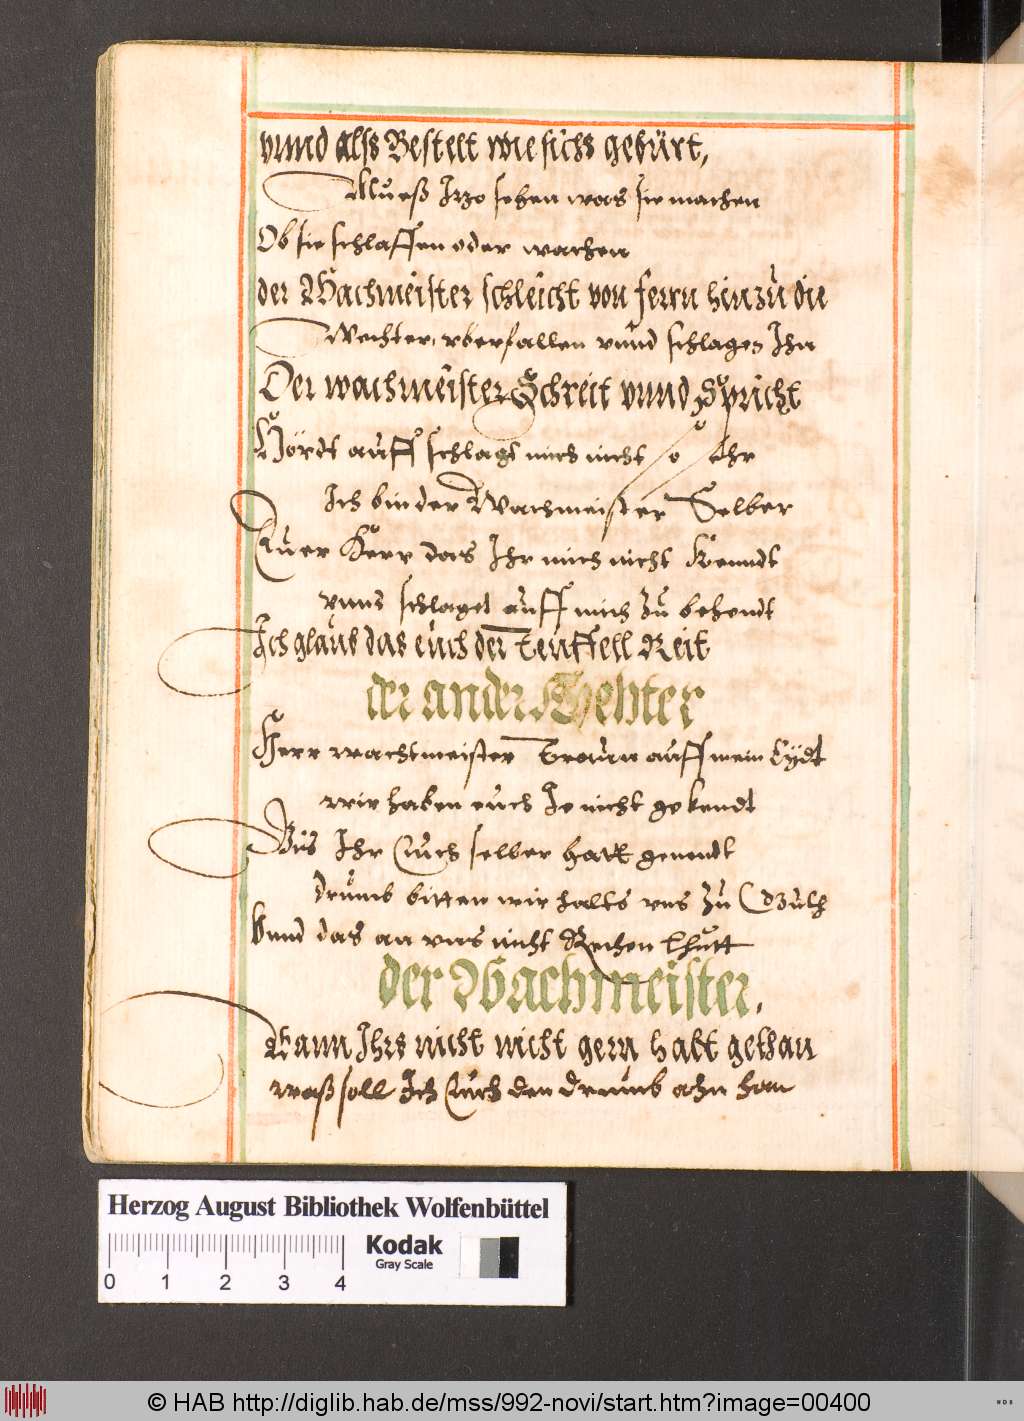 vnnd alss Bestelt wie sichs gebürt,
Mueß Izo sehen was sie machen
Ob sie schlaffen oder wachen
der Wachmeister schleicht von ferrn hinzu die
Wechter vberfallen vnnd schlagen Ihn
Der wachmeister Schreit vnnd Spricht
Hördt auff schlagt mich nicht so sehr
Ich bin der Wachmeister Selber
Euer Herr das Ihr mich nicht Kenndt
vnns schlaget auff mich zu behendt
Ich glaub das euch der teuffell Reit
der ander Wehter
Herr wachtmeister traun auff mein Eydt
wir haben euch Je nicht gekendt
Bis Ihr Euch selber hatt genendt
drumb bitten wir halts vns zu
vnnd das an vns nicht Rechen thutt
der Wachmeister.
Wann Ihrs nicht nicht gern habt gethan
waß soll Ich Euch den drumb ahn han
Herzog August Bibliothek Wolfenbüttel
Kodak
Gray Scale
0 1 2 3 4
© HAB http://diglib.hab.de/mss/992-novi/start.htm?image=00400